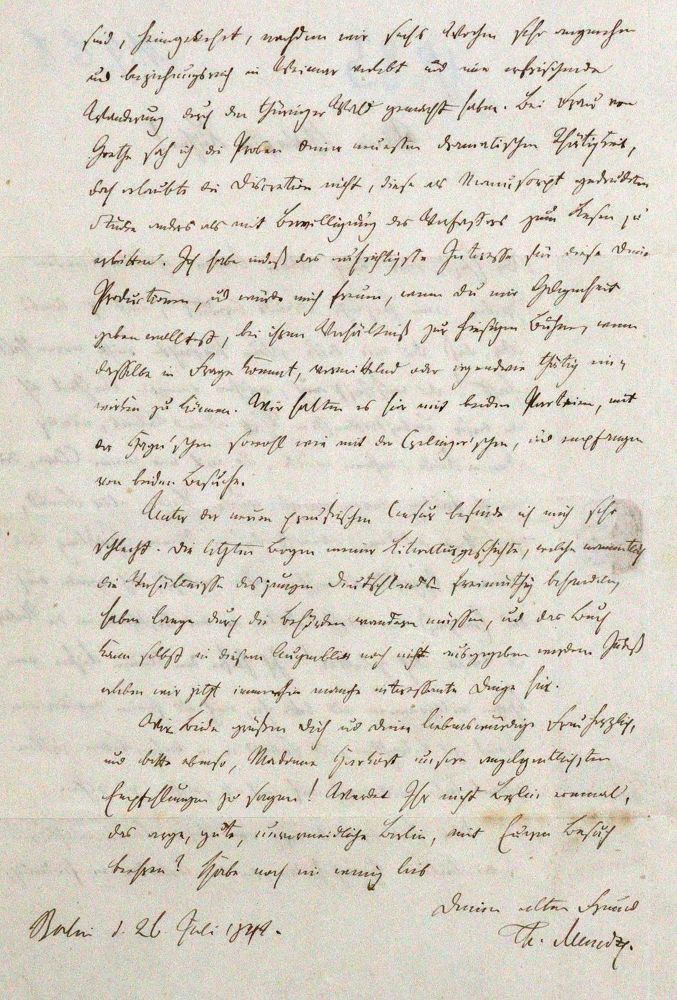 sind, heimgekehrt, nachdem wir sechs Wochen sehr angenehm
und beziehungsreich in Weimar verlebt und eine erfrischende
Wanderung durch den Thüringer Wald gemacht haben. Bei Frau von
Goethe sah ich die Proben Deiner neuesten dramatischen Thätigkeit,
doch erlaubte die Discretion nicht, diese als Manuscript gedruckten
Stücke anders als mit Bewilligung des Verfassers zum Lesen zu
erbitten. Ich habe indeß das aufrichtigste Interesse für diese Deine
Productionen, und würde mich freuen, wenn Du mir Gelegenheit
geben wolltest, bei ihrem Verhältniß zur hiesigen Bühne, wenn
dasselbe in Frage kommt, vermittelnd oder irgendwie thätig ein-
wirken zu können. Wir halten es hier mit beiden Parteien, mit
der Hagn'schen sowohl wie mit der Crelinger'schen, und empfangen
von beiden Besuche.
Unter der neuen preußischen Censur befinde ich mich sehr
schlecht. Die letzten Bogen meiner Literaturgeschichte, welche namentlich
die Verhältnisse des jungen Deutschlands freimüthig behandeln,
haben lange durch die Behörden wandern müssen, und das Buch
kann selbst in diesem Augenblick noch nicht ausgegeben werden. Indeß
erleben wir jetzt immerhin manche interessante Dinge hier.
Wir beide grüßen Dich und Deine liebenswürdige Frau herzlich,
und bitte ebenso, Madame unsere angelegentlichsten
Empfehlungen zu sagen! Werdet Ihr nicht Berlin einmal,
das arge, gute, unvermeidliche Berlin, mit Eurem Besuch
beehren? Habe noch ein wenig lieb
Deinen alten Freund
Th. Mundt.
Berlin d. 26. Juli 1842.